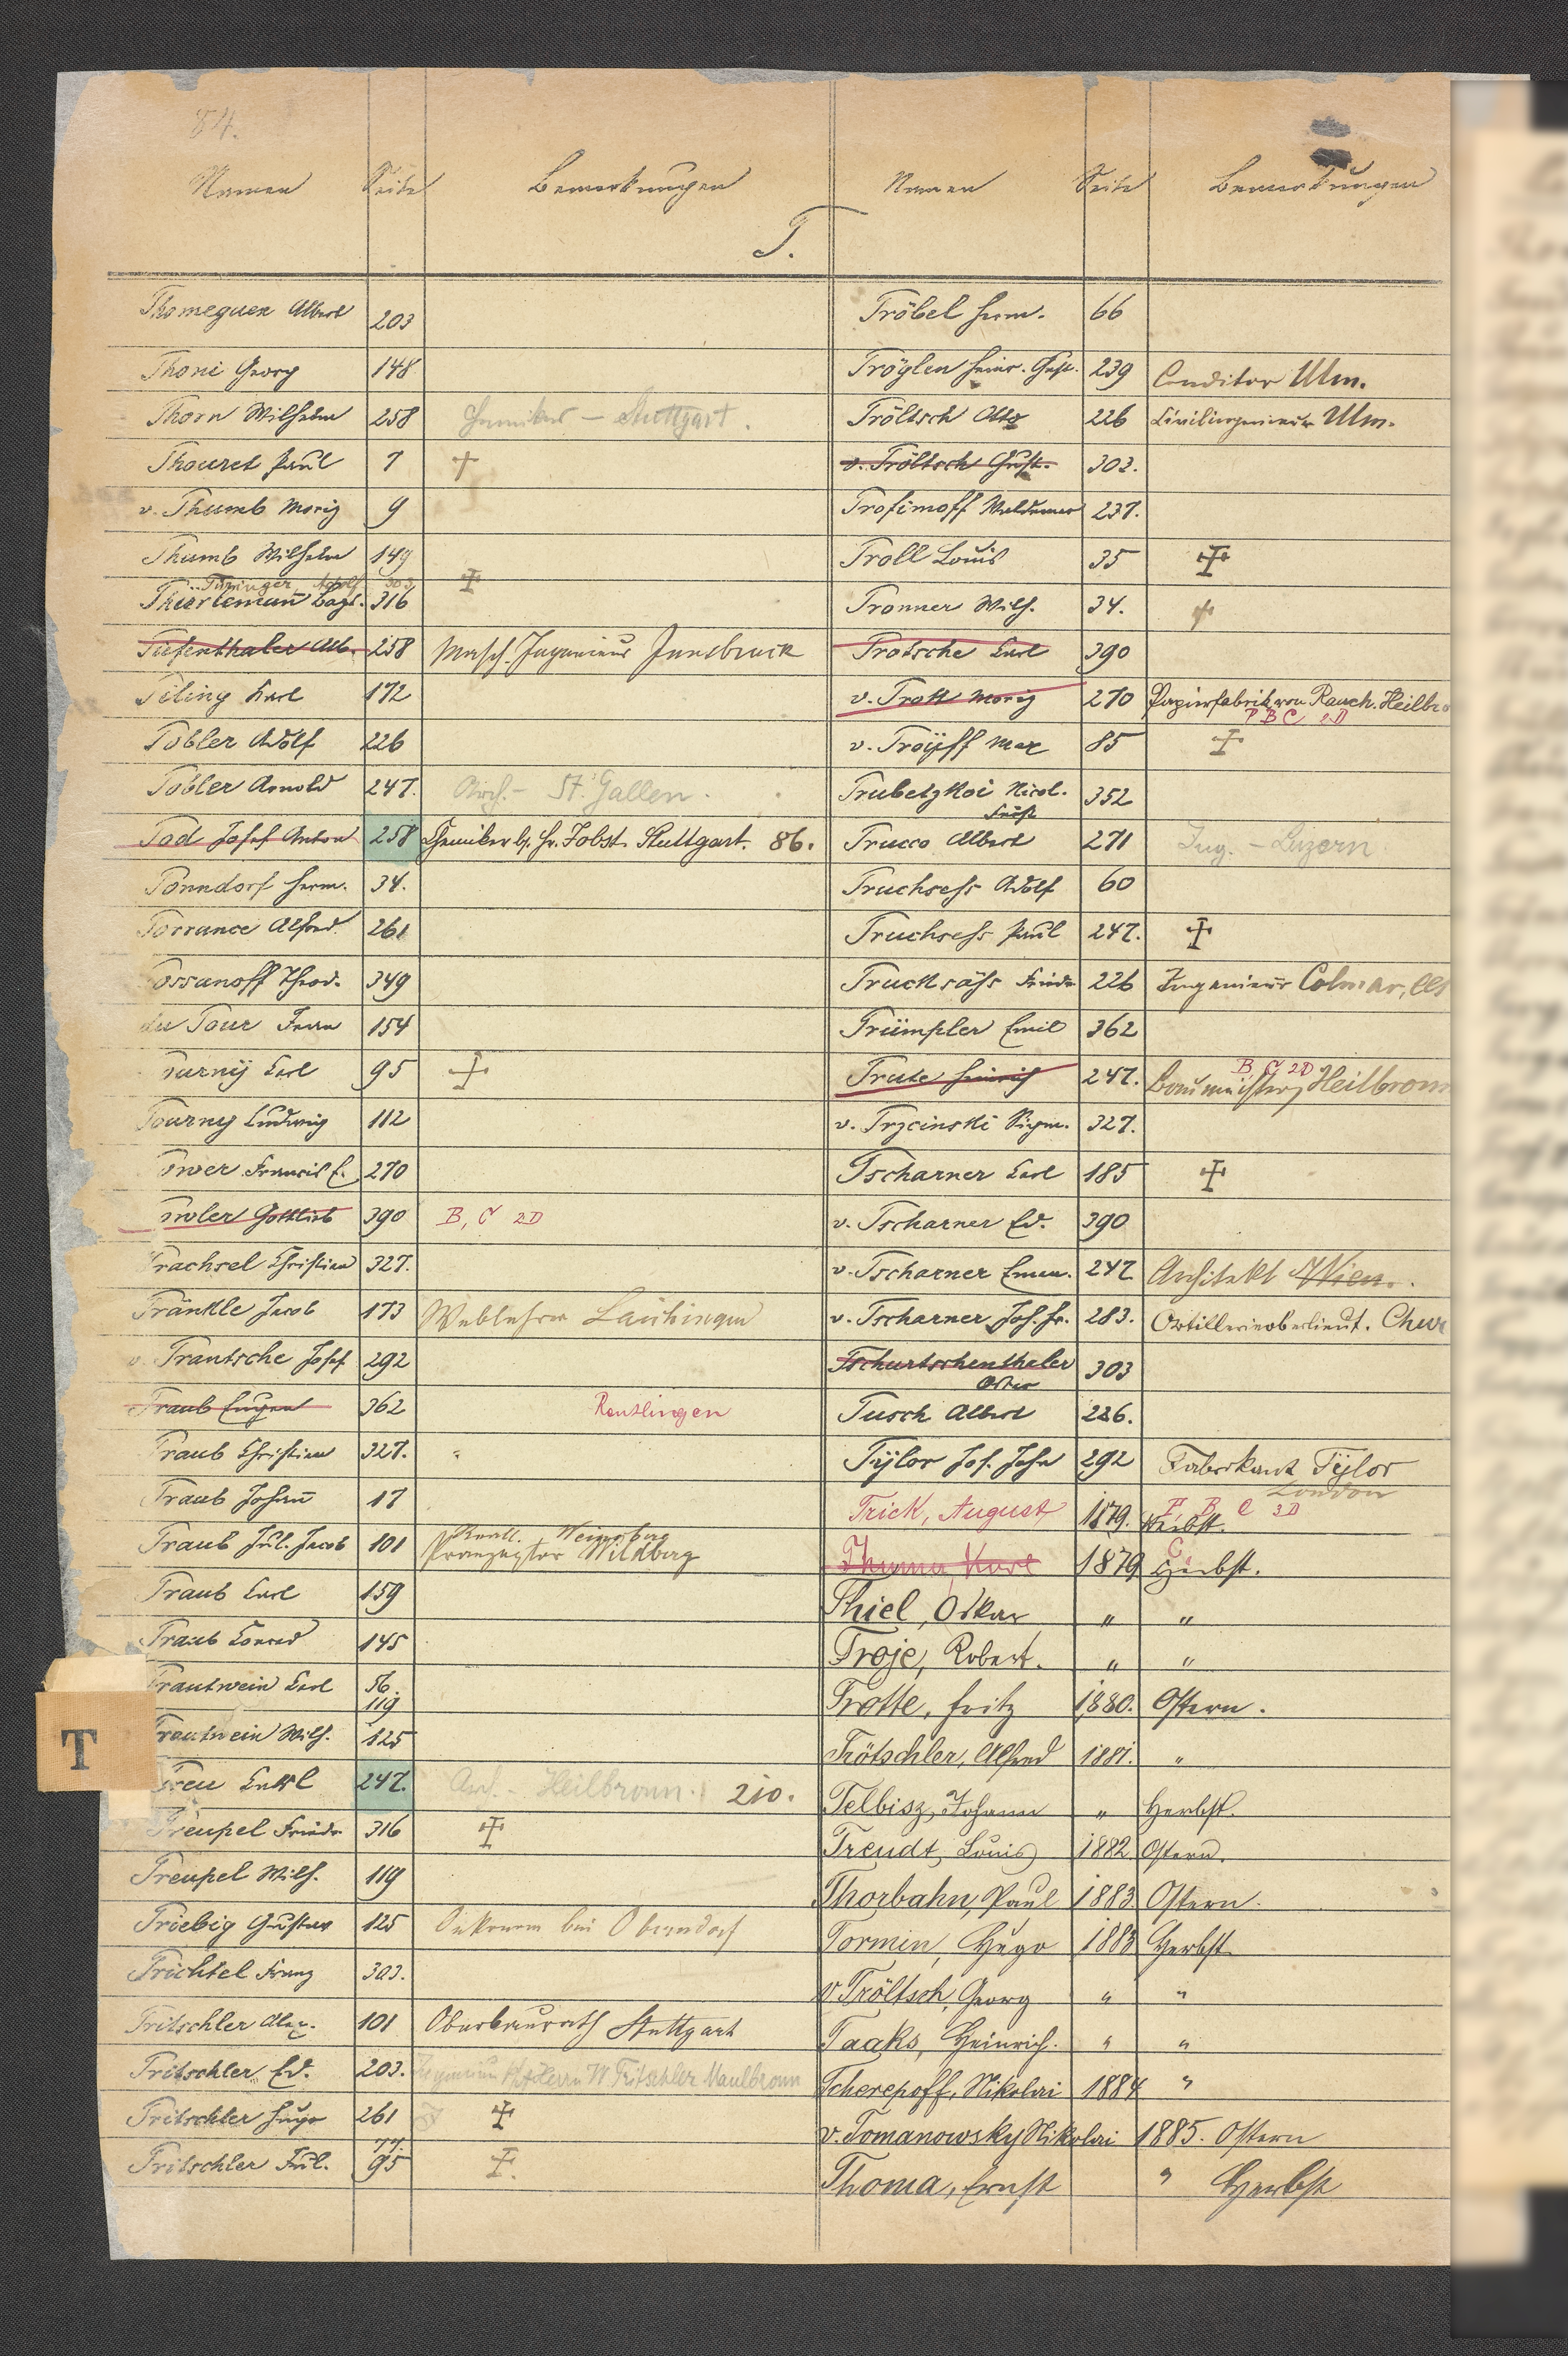 84.
Namen Seite Bemerkungen Namen Seite Bemerkungen
T.
Thomeguex Albert 203
Thoni Georg 148
Thorn Wilhelm 258 Chemiker – Stuttgart.
Thouret Paul 7 †
v. Thumb Moriz 9
Thumb Wilhelm 149
Thüringer Adolf 303
316 ‡
Tiefenthaler Alb. 258 Masch. Ingenieur Innsbruck
Tiling Karl 172
Tobler Adolf 226
Tobler Arnold 247. Arch. – St. Gallen.
Tod Josef Anton 258 Chemiker b. Hr. Jobst. Stuttgart. 86.
Tonndorf Herm. 34.
Torrance Alfred 261
Tossanoff Theod. 349
du Tour Franz 154
Turnÿ Carl 95 ‡
Tourny Ludwig 112
Tower Francis E. 270
Gottlieb 390 B, C 2D
Trachsel Christian 327.
Tränkle Jacob 173 Weblehrer Laichingen
v. Trantsche Josef 292
Traub Eugen 362 Reutlingen
Traub Christian 327. "
Traub Johann 17
Traub Jul. Jacob 101 Weinsberg
Wildberg
Traub Carl 159
Traub Conrad 145
Trautwein Carl 56.
119
Trautwein Wilh. 125
T
Treu Karl 247. Arch. – Heilbronn. 210.
Treupel Friedr. 316 ‡
Treupel Wilh. 119
Triebig Gustav 125 Oekonom bei Oberndorf
Trichtel Franz 303.
Tritschler Alex. 101 Oberbaurath Stuttgart
Tritschler Ed. 203. Herrn W. Tritschler Maulbronn
Tritschler Hugo 261 ‡
Tritschler Jul. 77.
95 ‡.
Tröbel Herm. 66
Tröglen Heinr. Gust. 239 Conditor Ulm.
Tröltsch Otto 226 Civilingenieur Ulm.
v. Tröltsch Gust. 303.
Trofimoff Waldemar 237.
Troll Louis 35 ‡
Tronner Wilh. 34. †
Trotsche Carl 390
v. Trott Moriz 270 Papierfabrik von Rauch. Heilbro
P B C 2D
v. Troÿff Max 85 ‡
Trubetzkoi Nicol. 352
Fürst
Trucco Albert 271 Ing. – Luzern
Truchsess Adolf 60
Truchsess Paul 247. ‡
Trucksäss Friedr. 226 Ingenieur Colmar, Els
Trümpler Emil 362
Trute Heinrich 247. B C 2D
Baumeister, Heilbronn
v. Trzcinski Sigm. 327.
Tscharner Carl 185 ‡
v. Tscharner Ed. 390
v. Tscharner Eman. 247 Architekt Wien.
v. Tscharner Joh. Fr. 283. Artillerieoberlieut. Chur
Tschurtschenthaler 303
Tusch Albert 226.
Tÿlor Jos. John 292 Fabrikant Tÿlor
London
Trick, August 1879. F, B C 3D
Herbst.
Thuma, Karl 1879 C.
Herbst.
Thiel, Oskar " "
Troje, Robert. " "
Trotte, Fritz 1880. Ostern.
Trötschler, Alfred 1881. "
Telbisz, Johann " Herbst.
Treudt, Louis 1882 Ostern.
Thorbahn, Paul 1883 Ostern.
Tormin, Hugo 1883 Herbst.
v Tröltsch, Georg " "
Taaks, Heinrich. " "
Tcherepoff, Nikolai 1884 "
v. Tomanowsky Nikolai 1885. Ostern
Thoma, Ernst " Herbst